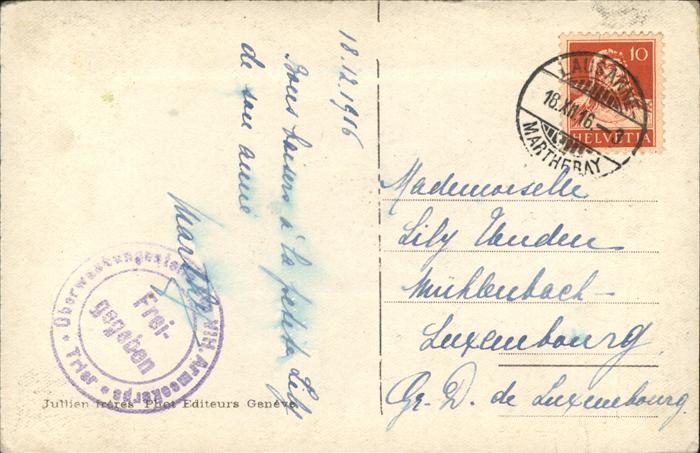 18.12.1916
Bons baisers à la petite Lily
de son amie
10
HELVETIA
LAUSANNE
18.XII.16.
MARTHERAY
Mademoiselle
Lily
Mühlenbach-
Luxembourg
Gr. D. de Luxembourg.
VIII. Armeekorps
Trier
Frei-
gegeben
Jullien frères Phot Editeurs Genève